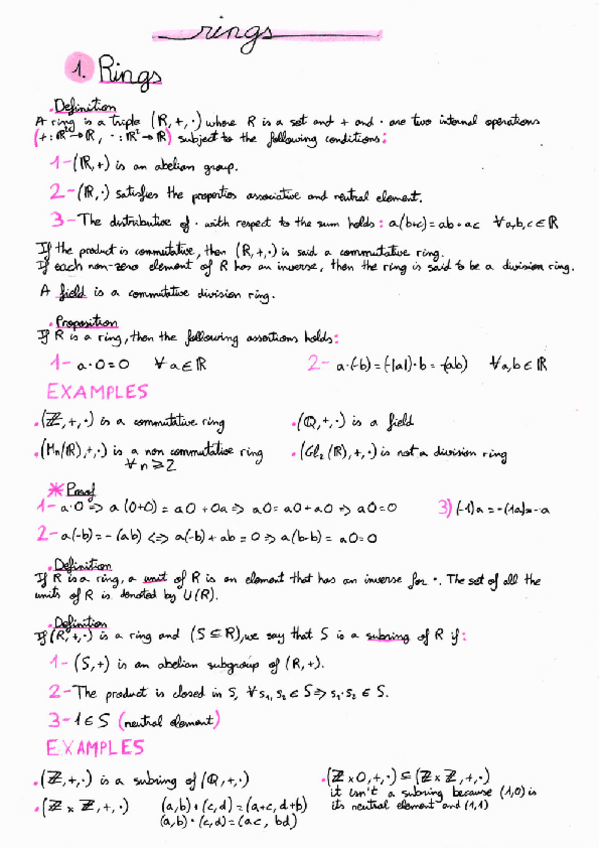 rings
1. Rings
• Definition
A ring is a triple (R, +, ·) whose R is a set and + and · are two internal operations
(+: ℝ²→ℝ, ·: ℝ²→ℝ) subject to the following conditions:
1-(ℝ,+) is an abelian group.
2-(ℝ,·) satisfies the properties associative and neutral element.
3-The distributive of · with respect to the sum holds: a(b+c)=ab+ac ∀a,b,c∈ℝ
If the product is commutative, then (R,+,·) is said a commutative ring.
If each non-zero element of R has an inverse, then the ring is said to be a division ring.
A field is a commutative division ring.
• Proposition
If R is a ring, then the following assertions holds:
1- a·0=0 ∀a∈ℝ 2- a·(-b)=(-|a|)·b=-(ab) ∀a,b∈ℝ
EXAMPLES
•(ℤ,+,·) is a commutative ring •(ℚ,+,·) is a field
•(Mn(ℝ),+,·) is a non commutative ring •(Gl₂(ℝ),+,·) is not a division ring
∀n≥2
* Proof
1- a·0 => a(0+0) = a0 + 0a => a0 = a0 + a0 => a0=0 3) (-1)a=-(1a)=-a
2- a(-b)=-(ab) <=> a(-b)+ab=0 => a(b-b)=a0=0
• Definition
If R is a ring, a unit of R is an element that has an inverse for ·. The set of all the
units of R is denoted by U(R).
• Definition
If (R,+,·) is a ring and (S⊆R), we say that S is a subring of R if:
1-(S,+) is an abelian subgroup of (R,+).
2-The product is closed in S, ∀s₁,s₂∈S=>s₁·s₂∈S.
3-1∈S (neutral element)
EXAMPLES
•(ℤ,+,·) is a subring of (ℚ,+,·) •(ℤx0,+,·)⊆(ℤxℤ,+,·)
it isn't a subring because (1,0) is
•(ℤxℤ,+,·) (a,b)+(c,d)=(a+c,d+b) its neutral element and (1,1)
(a,b)·(c,d)=(ac,bd)